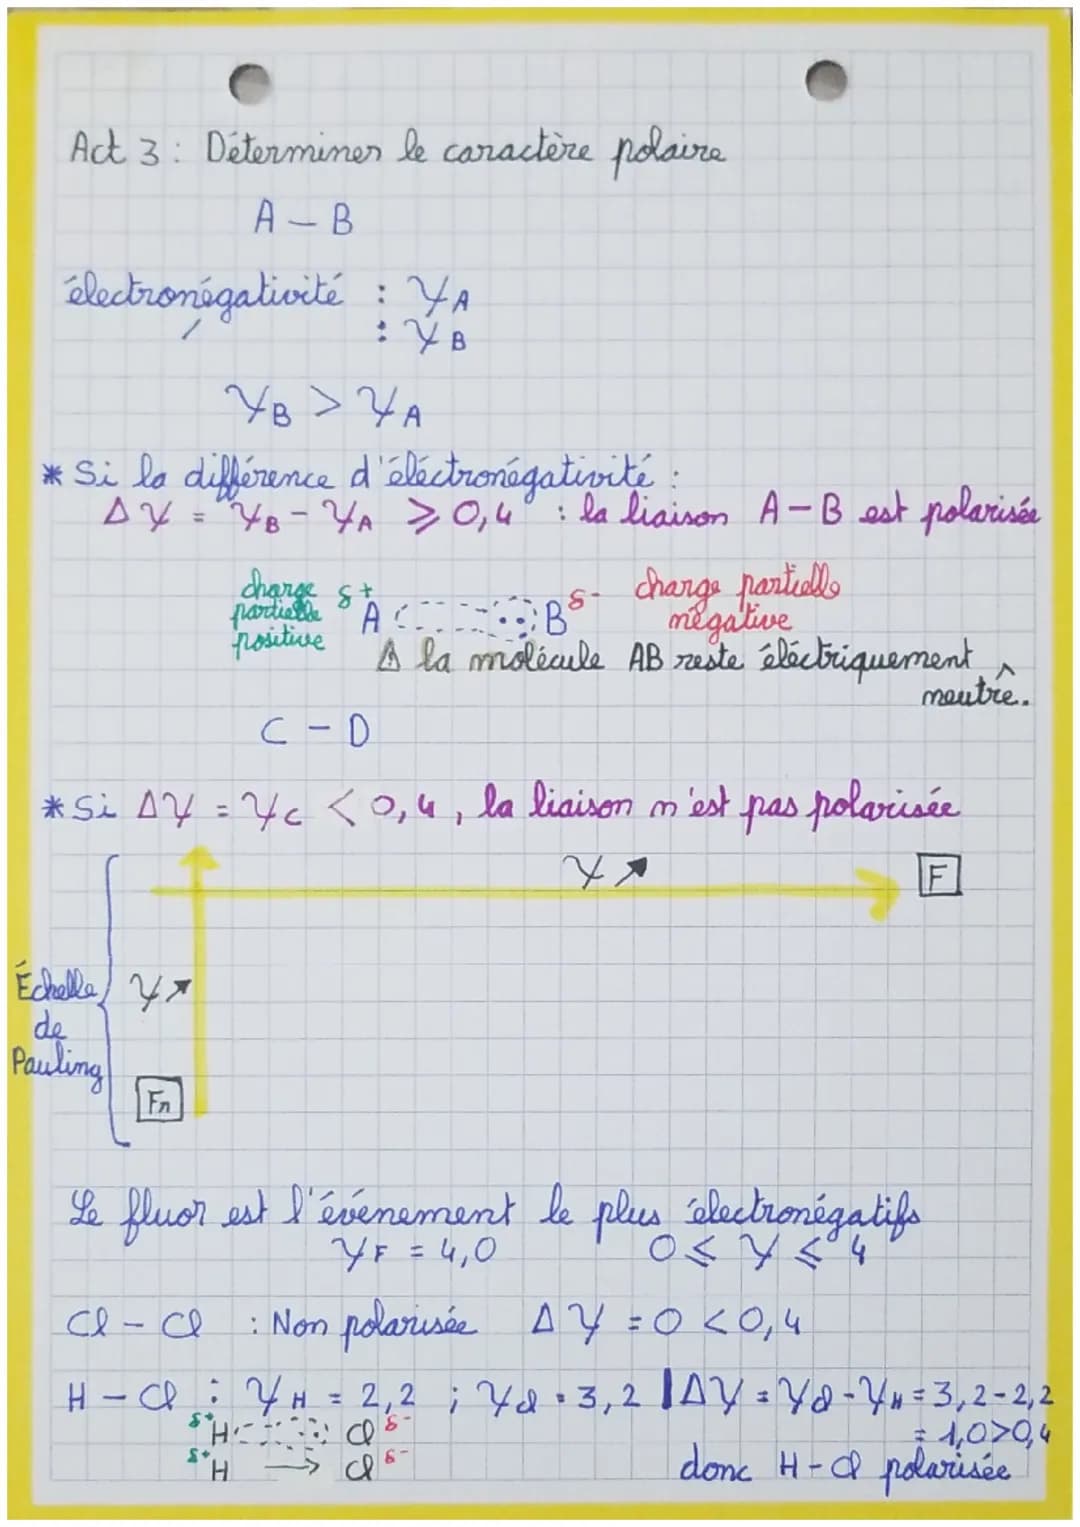 Act 3 : Déterminer le caractère polaire
A – B
électronégativité : χA
: χB
χB > χA
* Si la différence d'éléctronégativité :
Δχ = χB - χA ⩾ 0,4 : la liaison A – B est polarisée
charge partielle positive δ+ A B δ- charge partielle négative
⚠ la molécule AB reste éléctriquement
neutre.
C – D
* Si Δχ = χc < 0,4, la liaison n'est pas polarisée
χ ↗ F
Échelle de Pauling χ ↗
Fn
Le fluor est l'événement le plus électronégatifs
χF = 4,0 0 ⩽ χ ⩽ 4
Cl – Cl : Non polarisée Δχ = 0 < 0,4
H – Cl : χH = 2,2 ; χCl = 3,2 | Δχ = χCl - χH = 3,2 - 2,2
δ+ H Cl δ- = 1,0 > 0,4
δ+ H → Cl δ- donc H – Cl polarisée